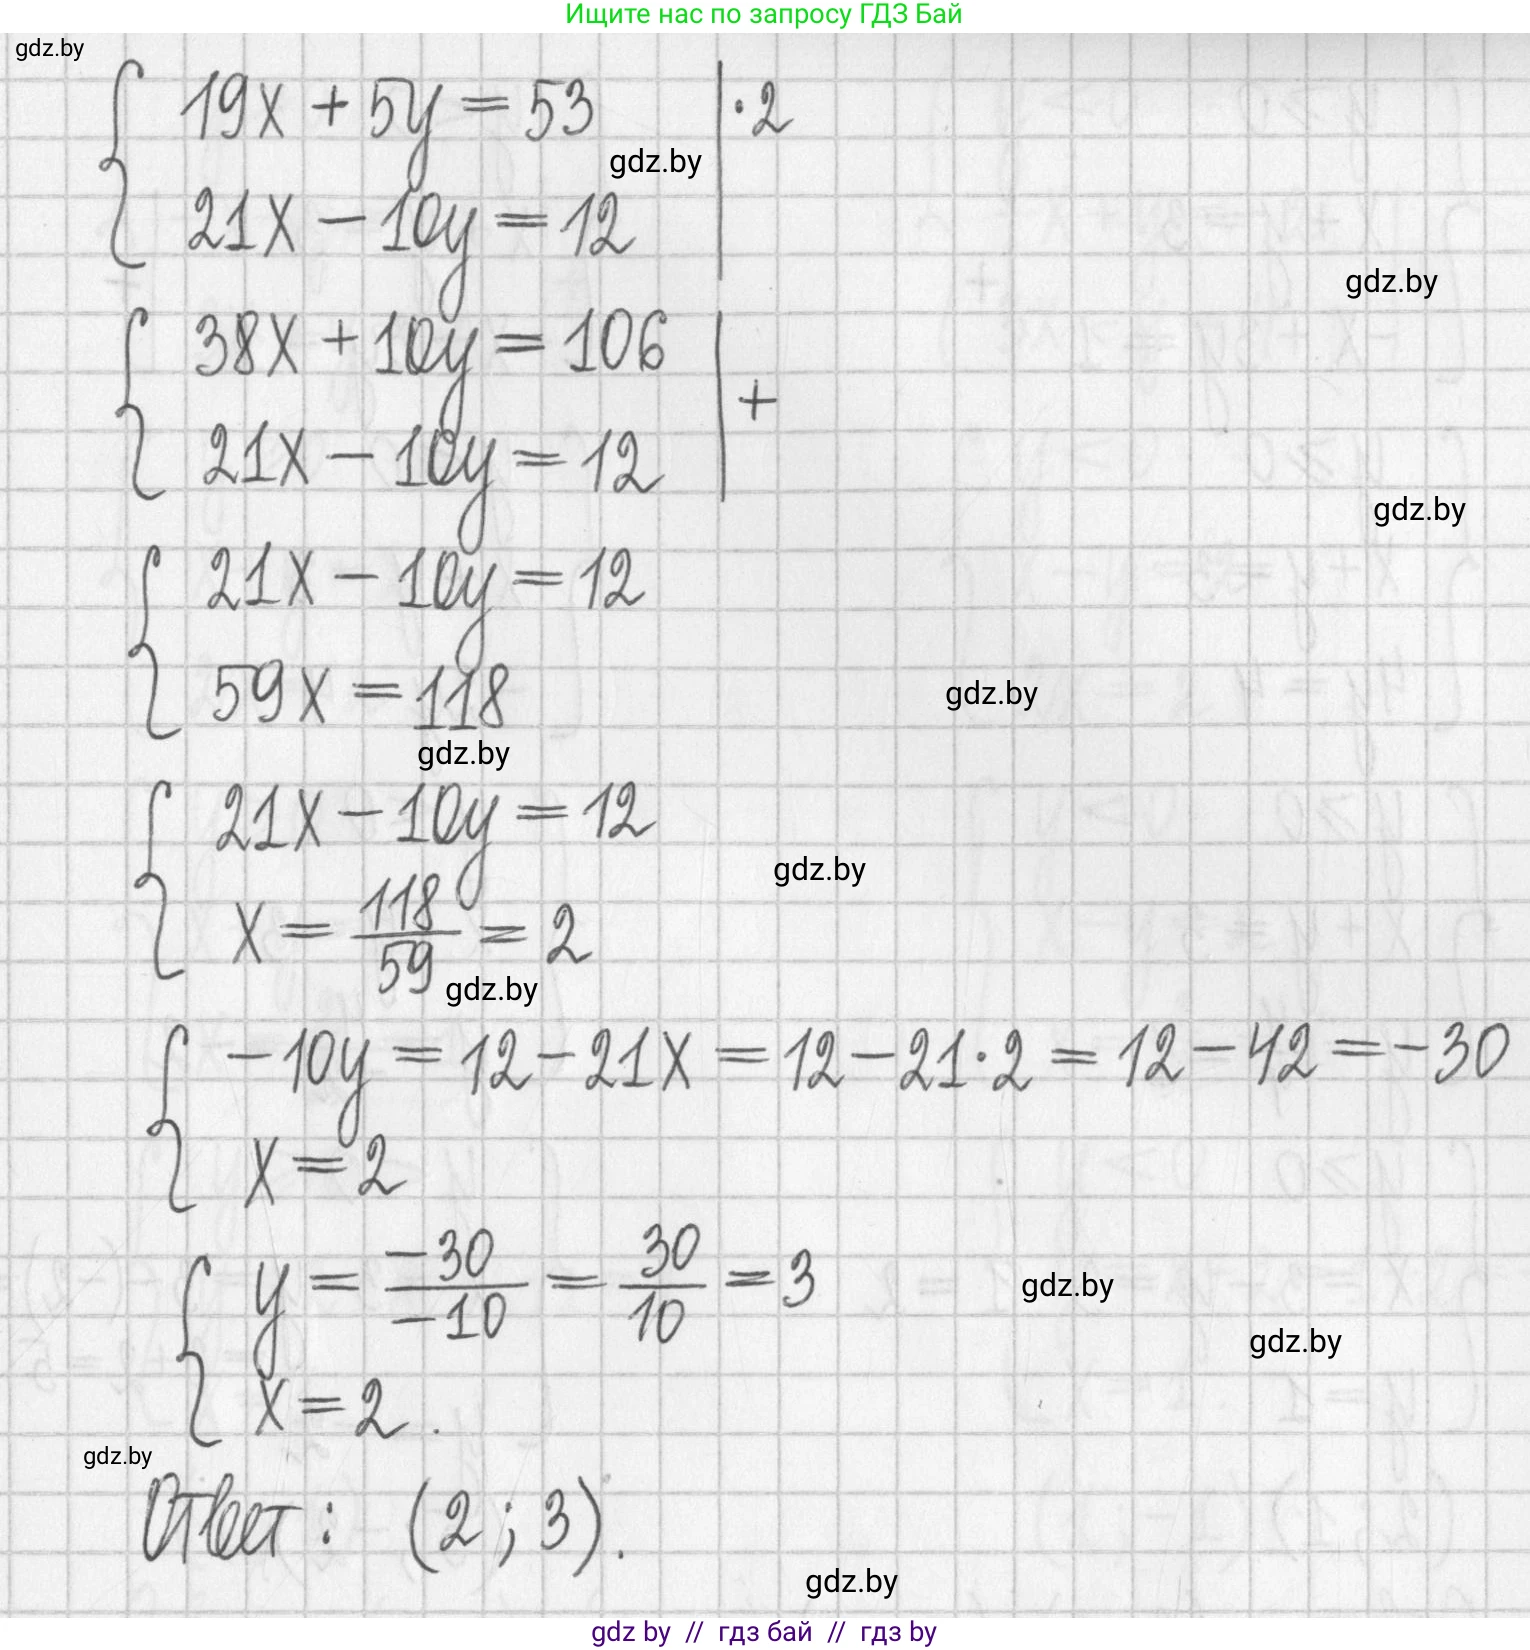 Ищите нас по запросу ГДЗ Бай
gdz.by
19x + 5y = 53 | ·2
gdz.by
21x − 10y = 12
gdz.by
38x + 10y = 106
+
21x − 10y = 12
gdz.by
21x − 10y = 12
59x = 118
gdz.by
gdz.by
21x − 10y = 12
gdz.by
x = 118/59 = 2
gdz.by
−10y = 12 − 21x = 12 − 21·2 = 12 − 42 = −30
x = 2
y = −30/−10 = 30/10 = 3
gdz.by
gdz.by
x = 2.
gdz.by
Ответ: (2; 3).
gdz.by
gdz by // гдз бай // гдз by